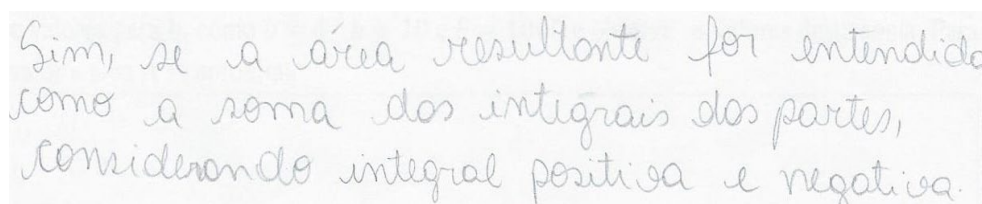 Sim, se a area resultante for entendida
como a soma das integrais das partes,
considerando integral positiva e negativa.